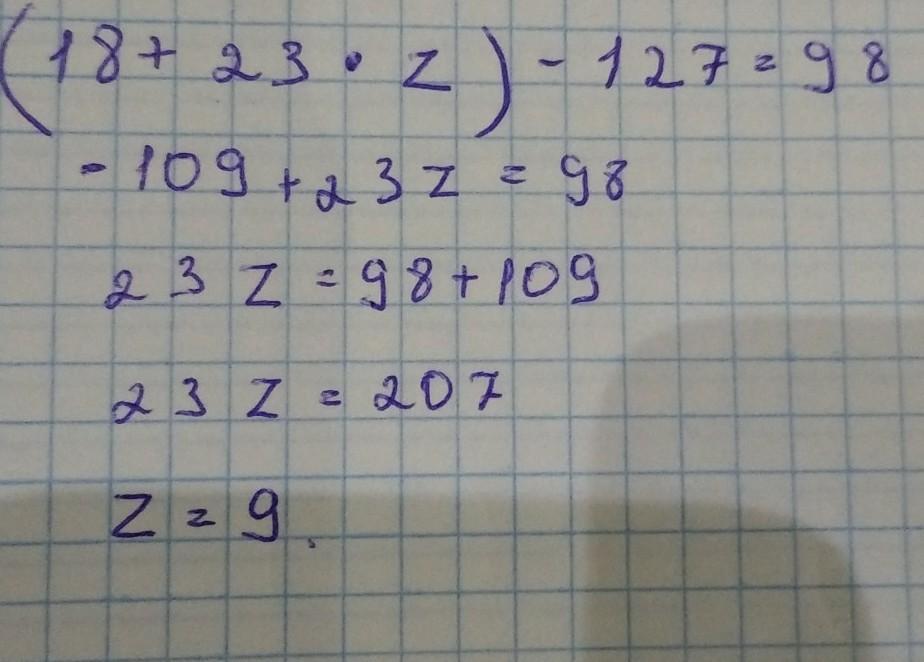 (18 + 23 · z) - 127 = 98
- 109 + 23 z = 98
23 z = 98 + 109
23 z = 207
z = 9.